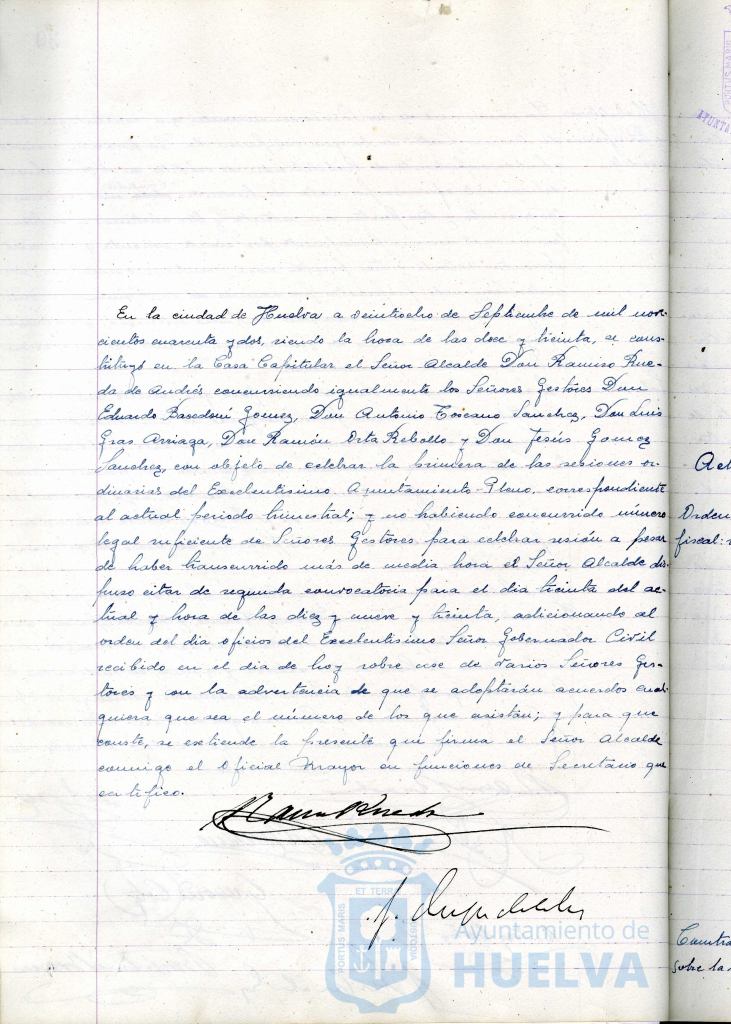 En la ciudad de Huelva a veintiocho de Septiembre de mil nove-
cientos cuarenta y dos, siendo la hora de las doce y treinta, se cons-
tituyó en la Casa Capitular el Señor Alcalde Don Ramiro Rue-
da de Andrés concurriendo igualmente los Señores Gestores Don
Eduardo Gomez, Don Antonio Toscano Sanchez, Don Luis
Gras Arriaga, Don Ramón Orta Rebollo y Don Jesús Gomez
Sanchez, con objeto de celebrar la primera de las sesiones or-
dinarias del Excelentisimo Ayuntamiento Pleno, correspondiente
al actual periodo trimestral; y no habiendo concurrido número
legal suficiente de Señores Gestores para celebrar sesión a pesar
de haber transcurrido más de media hora el Señor Alcalde dis-
puso citar de segunda convocatoria para el dia treinta del ac-
tual y hora de las diez y nueve y treinta, adicionando al
orden del dia oficios del Excelentisimo Señor Gobernador Civil
recibido en el dia de hoy sobre cese de varios Señores Ges-
tores y con la advertencia de que se adoptarán acuerdos cual-
quiera que sea el número de los que asistan; y para que
conste, se extiende la presente que firma el Señor Alcalde
conmigo el Oficial Mayor en funciones de Secretario que
certifico.
ET TERRÆ
PORTUS MARIS
CUSTODIA
Ayuntamiento de
HUELVA
PORTUS MARIS
Act
Orden
fiscal:
sobre la